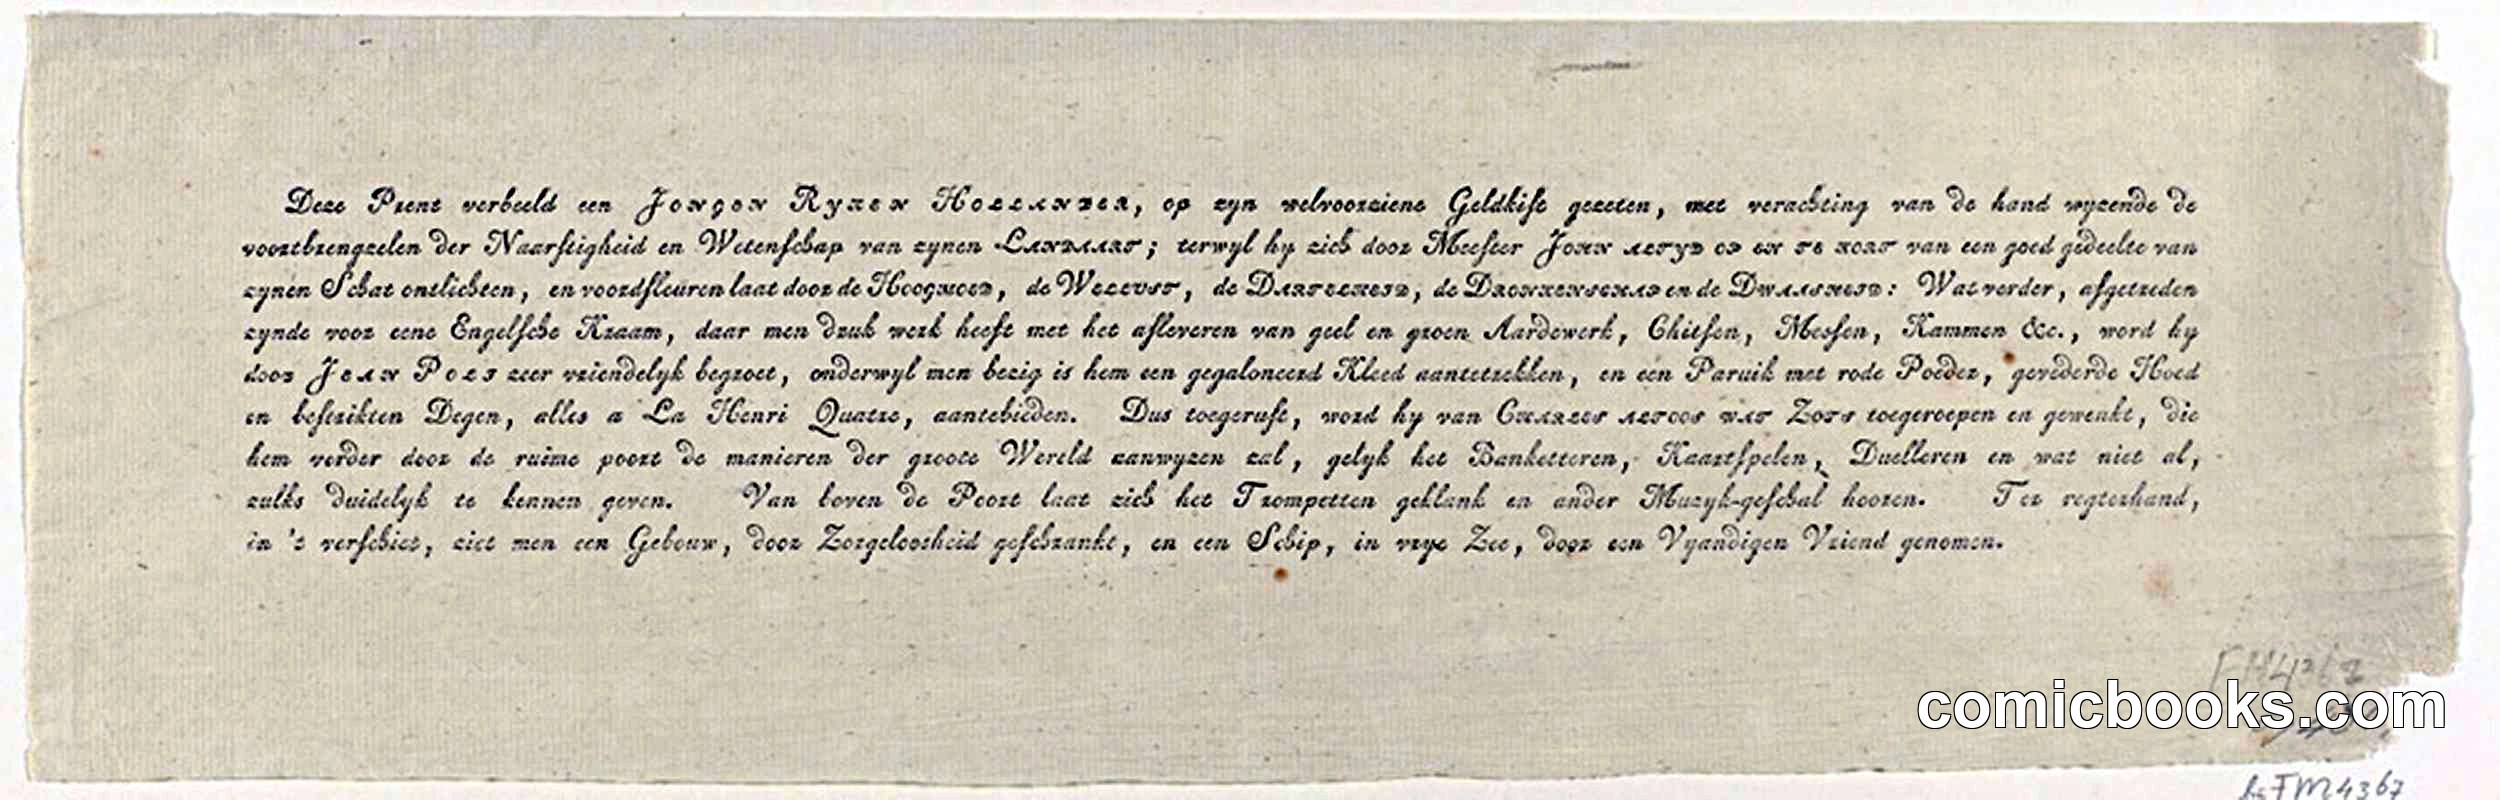 Deze Prent verbeeld een Jongen Ryken Hollander, op zyn welvoorziene Geldkist gezeten, met verachting van de hand wyzende de
voortbrengzelen der Naarstigheid en Wetenschap van zynen Landaart; terwyl hy zich door Meester John altyd op en te kort van een goed gedeelte van
zynen Schat ontlichten, en voordsleuren laat door de Hoogmoed, de Wellust, de Dartelheid, de Dronkenschap en de Dwaasheid: Wat verder, afgetreden
zynde voor eene Engelsche Kraam, daar men druk werk heeft met het afleveren van geel en groen Aardewerk, Chitsen, Messen, Kammen &c., word hy
door Jean Poli zeer vriendelyk begroet, onderwyl men bezig is hem een gegaloneerd Kleed aantetrekken, en een Paruik met rode Poeder, gevederde Hoed
en bestrikten Degen, alles a La Henri Quatre, aantebieden. Dus toegerust, word hy van Charles altoos wat Zots toegeroepen en gewenkt, die
hem verder door de ruime poort de manieren der groote Wereld aanwyzen zal, gelyk het Banketteren, Kaartspelen, Duelleren en wat niet al,
zulks duidelyk te kennen geven. Van boven de Poort laat zich het Trompetten geklank en ander Muzyk-geschal hooren. Ter regterhand,
in 't verschiet, ziet men een Gebouw, door Zorgeloosheid geschrankt, en een Schip, in vrye Zee, door een Vyandigen Vriend genomen.
FM4367
comicbooks.com
bij FM4367